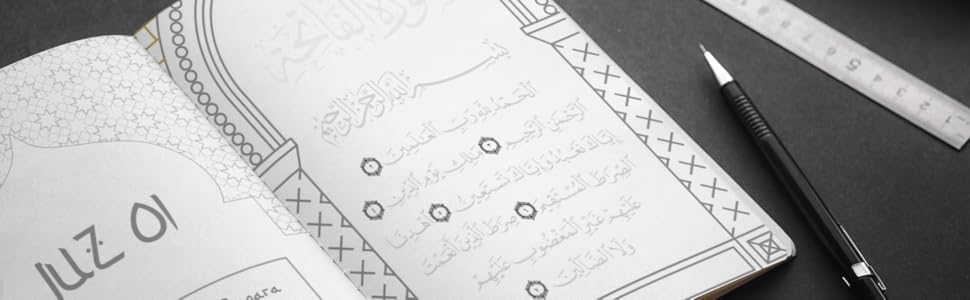 JUZ 01
para
سورة الفاتحة
بسم الله الرحمن الرحيم
الحمد لله رب العلمين
الرحمن الرحيم ملك يوم الدين
إياك نعبد وإياك نستعين اهدنا
الصرط المستقيم صرط الذين أنعمت
عليهم غير المغضوب عليهم
ولا الضالين